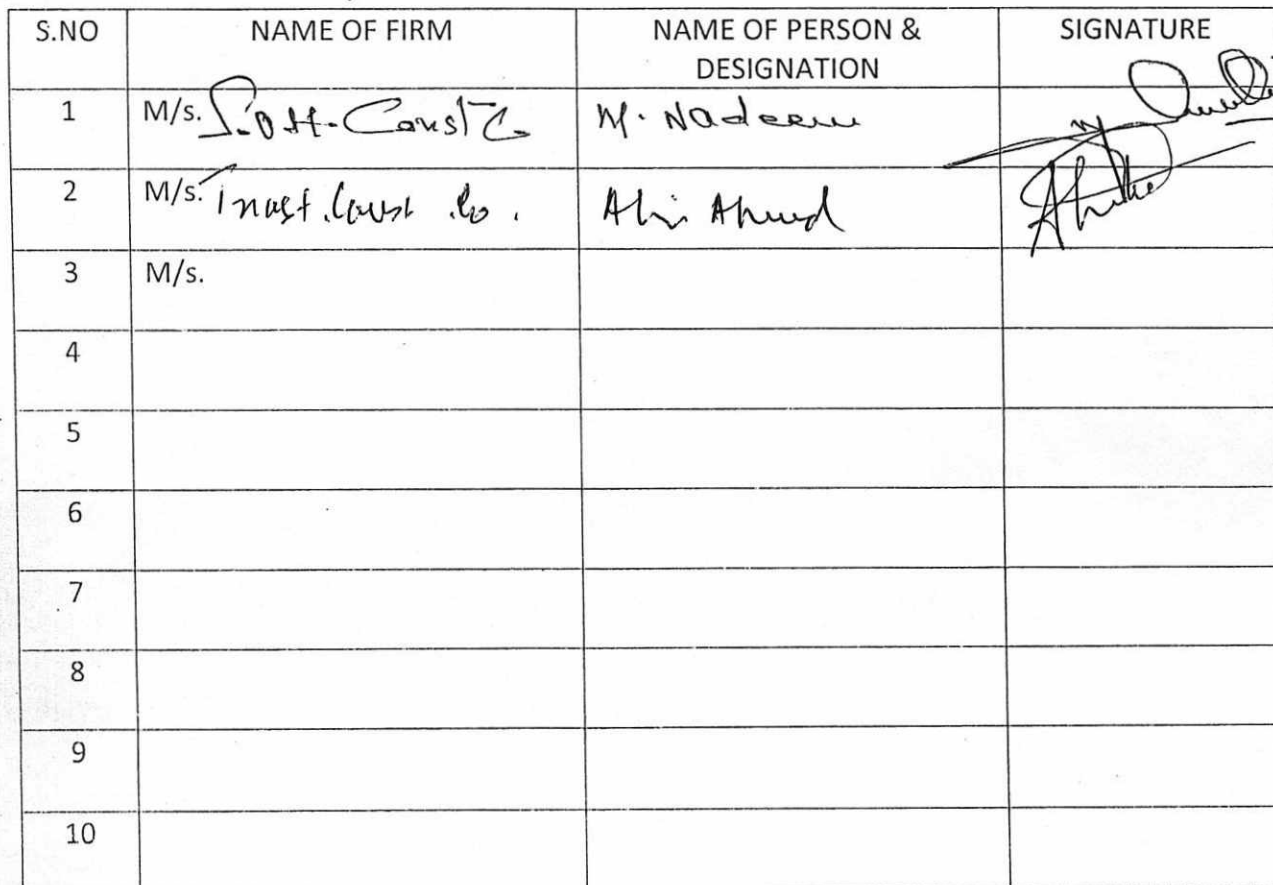 S.NO NAME OF FIRM NAME OF PERSON & DESIGNATION SIGNATURE
1 M/s. M. Nadeem
2 M/s. Const. Co. Ahmed
3 M/s.
4
5
6
7
8
9
10